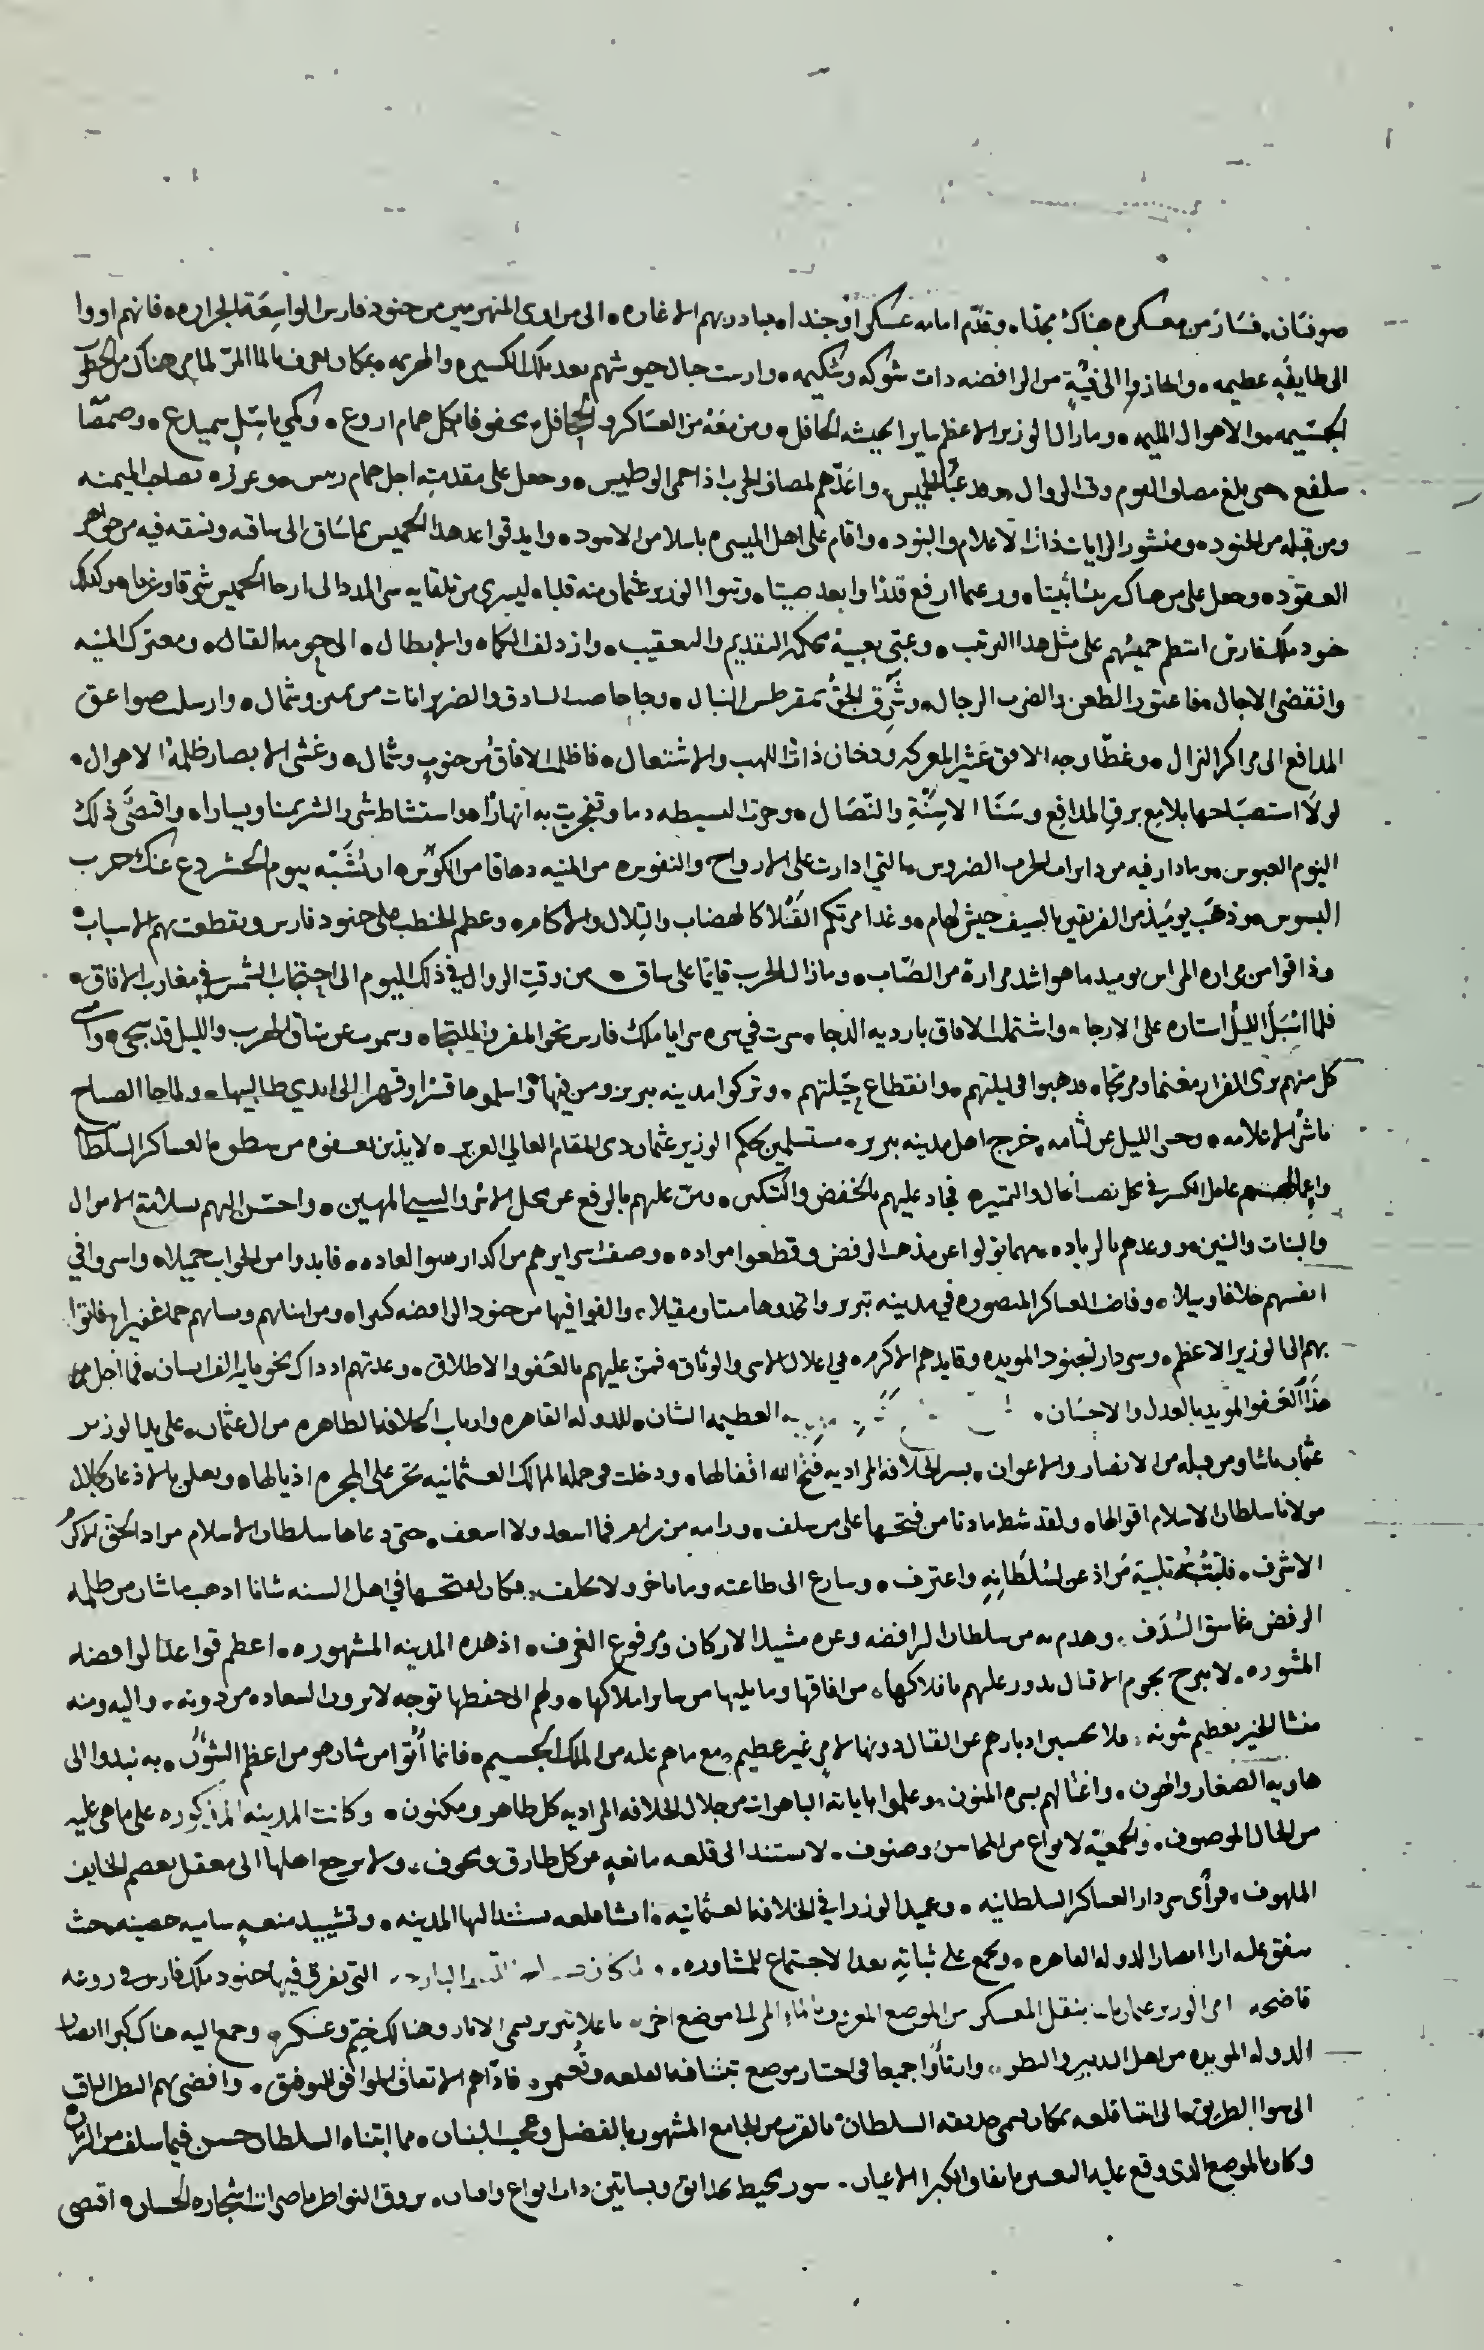 صوفيان. فسار من معسكره هناك بمجدا. وقدم امامه عسكرا وجندا. مبادر بهم الاغاره. الى من اوى المنهزمين من جنود فارس الواسعة الجراره. فانهم اووا
الى طايفه عظيمه. وانحازوا الى فيةٍ من الرافضه ذات شوكه وشكيمه. وارست حال جيوشهم بعد تلك الكسيره والهزيمه. بمكان يعرف المر لما من هناك من الخطوب
الجسيمه والاهوال المليمه. وما زال الوزير الاعظم سايرا بجيشه الحافل. ومن معه من العساكر والجحافل. محفوفا بكل همام اروع. وكمي باسل سميدع. وصمصام
سلفع. حتى بلغ مصاف القوم وقت الزوال. وقد عبّا الخميس. واعدهم لمصاف الحرب اذا حمى الوطيس. وجعل على مقدمته اجل همام رييس. وعزز. بصاحب الميمنه
ومن قبله من الجنود. ومنشور الرايات ذات الاعلام والبنود. واقام على اهل الميسره باسلا من الاسود. وايد قواعد هذا الخميس بما ساق الى ساقته ونسقه فيه من جواهر
العقود. وجعل على من هناك رييسا ثبيتا. وزعيما ارفع قدرا وابعد صيتا. وتبوا الوزير عثمان منه قلبا. ليسرى من تلقايه سر المدد الى ارجا الخميس شرقا وغربا. وكذلك
جنود ملك فارس انتظم خميسهم على مثل هذا الترتيب. وعبّى تعبية محكمة التقديم والتعقيب. وازدلف الكماه والابطال. الى حومة القتال. ومعترك المنيه
وانقضى الاجال. فاعتورا لطعن والضرب الرجال. وشرق الحق بمقرطس النبال. وجا حاصب البنادق والضربزانات من يمين وشمال. وارسلت صواعق
المدافع الى مراكز النزال. وغطا وجه الافق عثير المعركه ودخان ذات اللهب والاشتعال. فاظلمت الافاق من جنوب وشمال. وغشى الابصار ظلمة الاهوال.
لولا استصباحها بلامع برق المدافع وسنا الاسنة والنصال. وجرت البسيطه دما وتفجرت به انهارا. واستشاط شر والشر يمينا ويسارا. واقتضى ذلك
اليوم العبوس. وما دار فيه من دايرات الحرب الضروس. ما لتى ادارت على الارواح والنفوس. من المنيه دهاقا من الكوس. ان يشبه بيوم الحشر دع عنك حرب
البسوس. وذهب يوميذ من الفريقين بالسيف جيش لهام. وغدا مرتكم القتلا كالهضاب والتلال والاكام. وعظم الخطب على جنود فارس وتقطعت بهم الاسباب
وذاقوا من مراره المراس يوميذ ما هو اشد مرارة من الصاب. وما زال الحرب قايما على ساق. من وقت الزوال في ذلك اليوم الى احتجاب الشمس في مغارب الافاق.
فلما اسبل الليل استاره على الارجا. واشتملت الافاق بارديه الدجا. سرت في سره سرايا ملك فارس نحو المفر والملتجا. وشمرت عن ساق الهرب والليل قد سجى. وامسى
كل منهم يرى الفرار مغنما ومرتجا. فذهبوا في ليلتهم. وانقطاع حيلتهم. وتركوا مدينه تبريز ومن فيها. واسلموها قسرا وقهرا الى ايدي طالبيها. ولما جا الصباح
ناشرا لاعلامه. وحسر الليل عن لثامه. خرج اهل مدينه تبريز. مستسلمين لحكم الوزير عثمان ذي المقام العالي العزيز. لايذين بعفوه من سطوه العساكر السلطانيه
عامل الكسر في كل نصب الحال والتمييز. فجاد عليهم بالخفض والتسكين. ومن عليهم بالرفع عن محل الاسر والسبي المهين. واحسن اليهم بسلامة الاموال
والبنات والبنين. ووعدهم بالزياده. مهما تولوا عن مذهب الرفض وقطعوا مواده. وصفت سرايرهم من اكدار سوا العاده. فابدوا من الجواب جميلا. واسروا في
انفسهم خلافا وبيلا. وفاضت العساكر المنصوره في مدينه تبريز واتخذوها مبيتا ومقيلا. والفوا فيها من جنود الرافضه كثيرا. ومن ابنايهم ونسايهم جما غفيرا. فاتوا
بهم الى الوزير الاعظم. وسردار الجنود المويده وقايدهم الاكرم. في اغلال الاسر والوثاق. فمن عليهم بالعفو والاطلاق. وعدتهم اذ ذاك نحو ماية الف انسان. فما اجل
هذا العفو المويد بالعدل والاحسان. العظيمه الشان. للدوله القاهره وارباب الخلافه الطاهره من ال عثمان. على يد الوزير
عثمان باشا ومن قبله من الانصار والاعوان. بسر الخلافه المراديه فتح الله اقفالها. ودخلت في جملة الممالك العثمانيه تجر على المجره اذيالها. وتعلن بالاذعان لجلال
مولانا سلطان الاسلام اقوالها. ولقد شط مادنا من فتحها على من سلف. ورامه من رام فما اسعد ولا اسعف. حتى دعاها سلطان الاسلام مراد الحق الاكرم
الاشرف. فلبته تلبية مراد عن لسلطانه واعترف. وسارع الى طاعته وما تاخر ولا تخلف. فكان لفتحها في اهل السنه شانا اذهب ما شان من ظلمه
الرفض غاسق السدف. وهدم به من سلطان الرافضه وعزه مشيد الاركان ومرفوع الغرف. اذ هذه المدينه المشهوره. اعظم قواعد الرافضه
المثبوره. لا يبرح نجوم الاقبال يدور عليهم بافلاكها. من افاقها وما يليها من ساير املاكها. ولهم الى حفظها توجه لا يرون السعاده من دونه. واليه ومنه
منشا الخير بعظيم شونه. ولا تحسبن ادبارهم عن القتال دونها لامر غير عظيم. مع ما هم عليه من الملك الجسيم. فانما اتوا من شان هو من اعظم الشون. به نبذوا الى
هاويه الصغار والهون. واغتالهم بسره المنون. وعلموا باياته الباهرات من جلال الخلافه المراديه كل ظاهر ومكنون. وكانت المدينه المذكوره على ما هي عليه
من الحال الموصوف. والجمعية لانواع من المحاسن وصنوف. لا تستند الى قلعه مانعه من كل طارق ومخوف. ولا يرجع اهلها الى معقل يعصم الخايف
الملهوف. فراى سردار العساكر السلطانيه. وعميد الوزرا في الخلافه العثمانيه. انشا قلعه تستند اليها المدينه. وتشييد منعه ساميه حصينه. بحيث
يتفق عليه ارا انصار الدوله القاهره. ويجمع على ثباته بعد الاجتماع للمشاوره. التي تفرق فيها جنود ملك فارس في روعه
فاضحه. امر الوزير عثمان باشا بنقل المعسكر من الموضع المعروف الى موضع اخر. باعلا تبريز وهنالك خيم وعسكر. وجمع اليه هناك كبرا انصار
الدوله المويده من اهل التدبير والنظر. وارتاوا جميعا في اختيار موضع تبتنا فيه القلعه وتعمر. فاداهم الاتفاق الموافق للتوفيق. وافضى بهم النظر الثاقب
الى سوا الطريق. الى ابتنا قلعه بمكان يسمى حديقه السلطان. بالقرب من الجامع المشهور بالفضل وعجيب البنيان. مما ابتناه السلطان حسن فيما سلف من الزمان
وكان بالموضع الذي وقع عليه التعيين باتفاق الكبرا الاعيان. سور يحيط بحدايق وبساتين ذات انواع وافنان. يروق النواظر ناضرات اشجاره الحسان. اقتضى